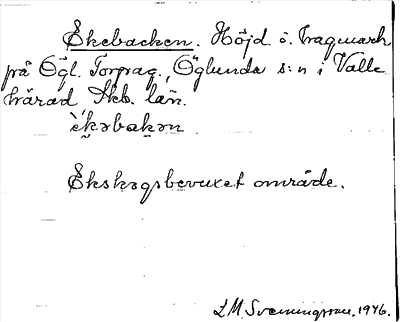 Ekebacken. Höjd ö. kragmark
på Ögl. Torpag., Öglunda s:n i Valle
härad Skb. län.
èkəbakən
Ekskogsbevuxet område.
L M. Svenungsson. 1946.